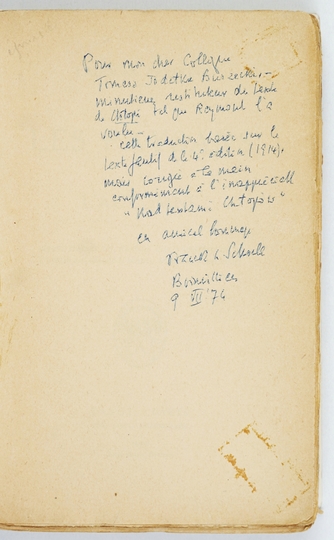 Pour mon cher Collègue
Tomasz Jodełka Burzecki –
minutieux restituteur du texte
de Chłopi tel que Reymont l'a
voulu –
cette traduction basée sur le
texte fautif de la 4e édition (1914),
mais corrigée à la main
conformément à l'inappréciable
"Nad tekstami Chłopów"
en amical hommage
Franck L. Schoell
9 VII 74